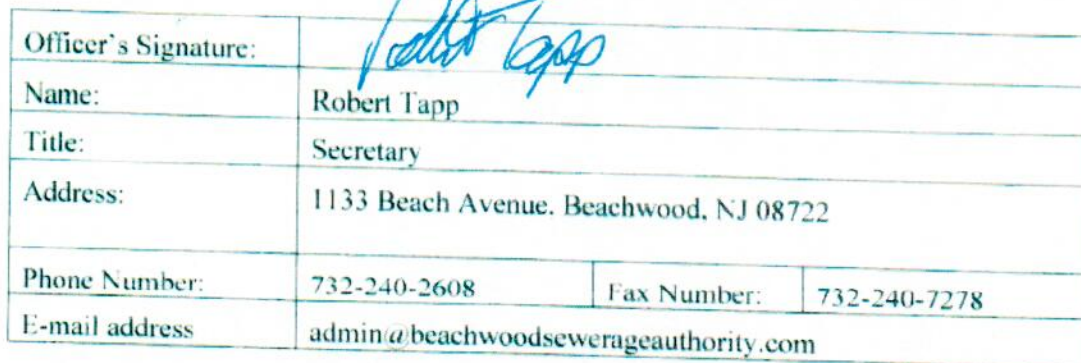 Officer's Signature: Robert Tapp
Name: Robert Tapp
Title: Secretary
Address: 1133 Beach Avenue. Beachwood, NJ 08722
Phone Number: 732-240-2608 Fax Number: 732-240-7278
E-mail address admin@beachwoodsewerageauthority.com